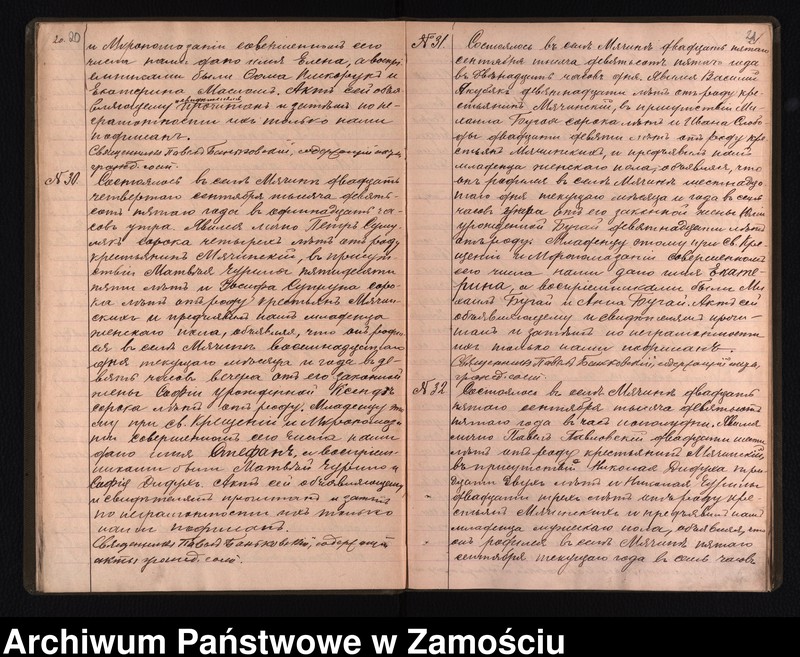 20. 20
и Муропомазаніи совершенномъ его
числа нами дано имя Елена, а воспрі-
емниками были Сома и
Екатерина Актъ сей объя-
вляющему прочитанъ и затѣмъ по не-
грамотности ихъ только нами
подписанъ.
Священникъ Павелъ содержащій акты
гражд. сост.
№ 30.
Состоялось въ селѣ Мячинъ двадцать
четвертаго сентября тысяча девять-
сотъ пятаго года въ одиннадцать ча-
совъ утра. Явился лично Петръ
сорока четырехъ лѣтъ отъ роду
крестьянинъ Мячинскій, въ присут-
ствіи Матвѣя Чурилы пятидесяти
пяти лѣтъ и Іосифа Супруна соро-
ка лѣтъ отъ роду крестьянъ Мячин-
скихъ и предъявилъ намъ младенца
женскаго пола, объявляя, что онъ родил-
ся въ селѣ Мячинъ восемнадцатаго
дня текущаго мѣсяца и года въ де-
вять часовъ вечера отъ его законной
жены Софіи урожденной
сорока лѣтъ отъ роду. Младенцу это-
му при св. Крещеніи и Муропомаза-
ніи совершенномъ его числа нами
дано имя Стефанъ, а воспріем-
никами были Матвѣй Чурило и
Софія Дидухъ. Актъ сей объявляющему
и свидѣтелямъ прочитанъ и затѣмъ
по неграмотности ихъ только
нами подписанъ.
Священникъ Павелъ содержащій
акты гражд. сост.
21
№ 31.
Состоялось въ селѣ Мячинъ двадцать пятаго
сентября тысяча девятьсотъ пятаго года
въ двѣнадцать часовъ дня. Явился Василій
девятнадцати лѣтъ отъ роду кре-
стьянинъ Мячинскій, въ присутствіи Ми-
хаила Бугая сорока лѣтъ и Ивана
двадцати девяти лѣтъ отъ роду кре-
стьянъ Мячинскихъ, и предъявилъ намъ
младенца женскаго пола, объявляя, что
онъ родился въ селѣ Мячинъ шестнадца-
таго дня текущаго мѣсяца и года въ семь
часовъ утра отъ его законной жены
урожденной Бугай девятнадцати лѣтъ
отъ роду. Младенцу этому при св. Кре-
щеніи и Муропомазаніи совершенномъ
его числа нами дано имя Екате-
рина, а воспріемниками были Ми-
хаилъ Бугай и Анна Бугай. Актъ сей
объявляющему и свидѣтелямъ прочи-
танъ и затѣмъ по неграмотности
ихъ только нами подписанъ.
Священникъ Павелъ содержащій акты
гражд. сост.
№ 32
Состоялось въ селѣ Мячинъ двадцать
пятаго сентября тысяча девятьсотъ
пятаго года въ часъ пополудни. Явился
лично Павелъ Павловскій двадцати шести
лѣтъ отъ роду крестьянинъ Мячинскій,
въ присутствіи Николая Дидуха три-
дцати двухъ лѣтъ и Николая Чурилы
двадцати трехъ лѣтъ отъ роду кре-
стьянъ Мячинскихъ и предъявилъ намъ
младенца мужескаго пола, объявляя, что
онъ родился въ селѣ Мячинъ пятаго
сентября текущаго года въ семь часовъ
Archiwum Państwowe w Zamościu